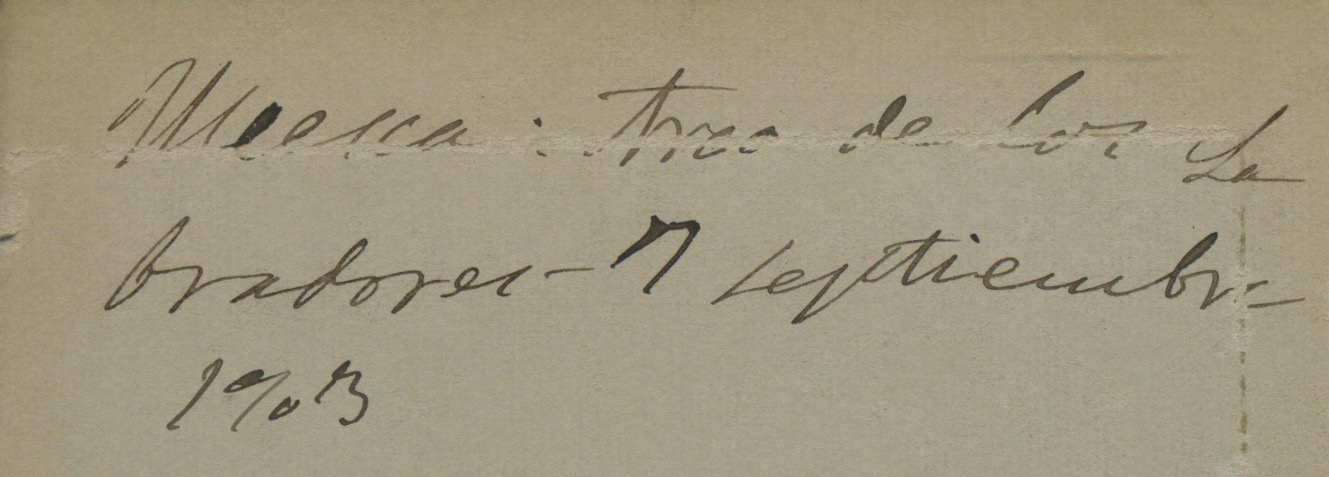 Huesca: Arco de los La
bradores - 7 septiembre
1903